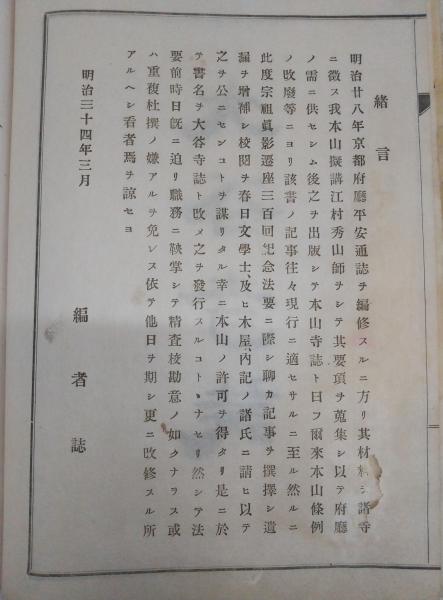 緒言
明治廿八年京都府廳平安通誌ヲ編修スルニ方リ其材料ヲ諸寺
ニ徴ス我本山擬講江村秀山師ヲシテ其要項ヲ蒐集シ以テ府廳
ノ需ニ供セシム後之ヲ出版シテ本山寺誌ト曰フ爾來本山條例
ノ改廢等ニヨリ該書ノ記事往々現行ニ適セサルニ至ル然ルニ
此度宗祖眞影遷座三百回記念法要ニ際シ聊カ記事ヲ撰擇シ遺
漏ヲ增補シ校閲ヲ春日文學士、及ヒ木屋、內記ノ諸氏ニ請ヒ以テ
之ヲ公ニセンコトヲ謀リタル幸ニ本山ノ許可ヲ得タリ是ニ於
テ書名ヲ大谷寺誌ト改メ之ヲ發行スルコトヽナセリ然シテ法
要前時日旣ニ迫リ職務ニ鞅掌シテ精査校勘意ノ如クナラス或
ハ重複杜撰ノ嫌アルヲ免レス依テ他日ヲ期シ更ニ改修スル所
アルヘシ看者焉ヲ諒セヨ
明治三十四年三月
編者誌